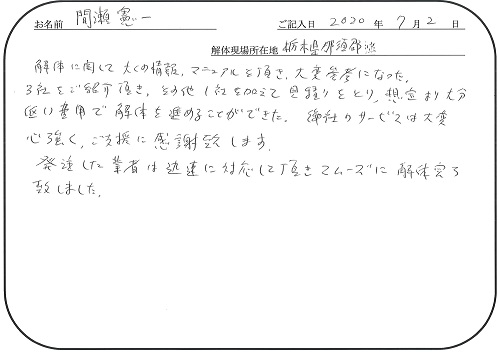 お名前 間瀬 憲一 ご記入日 2020 年 7 月 2 日
解体現場所在地 栃木県那須郡
解体に関して 大くの情報、マニュアルを頂き、大変参考になった。
3社をご紹介頂き、その他1社を加えて見積りをとり、想定より大分
低い費用で解体を進めることができた。御社のサービスは大変
心強く、ご支援に感謝致します。
発注した業者は迅速に対応して頂きスムーズに解体完了
致しました。